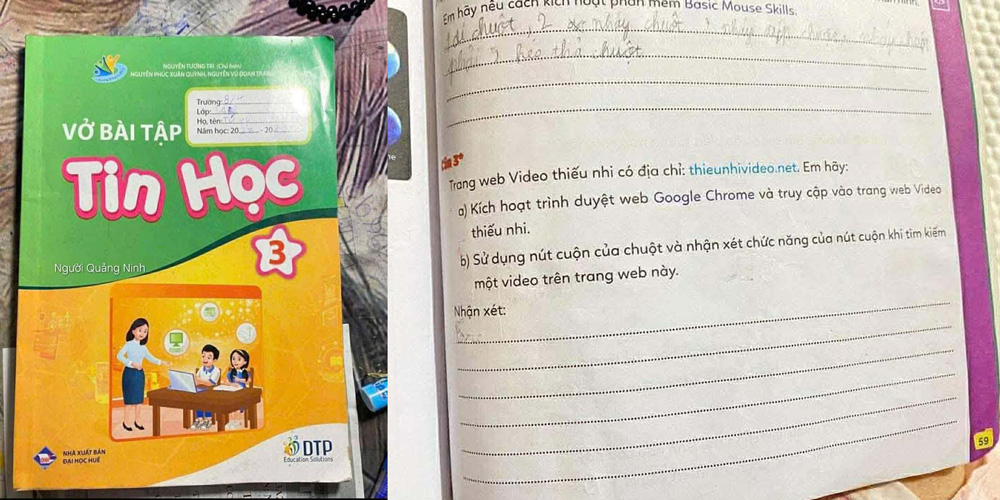 NGUYỄN TƯƠNG TRI (Chủ biên)
NGUYỄN PHÚC XUÂN QUỲNH, NGUYỄN VŨ ĐOAN TRANG
Trường:
Lớp:
Họ, tên:
Năm học: 20 - 20
VỞ BÀI TẬP
Tin Học
3
Người Quảng Ninh
NHÀ XUẤT BẢN
ĐẠI HỌC HUẾ
DTP
Education Solutions
Em hãy nêu cách kích hoạt phần mềm Basic Mouse Skills.
chuột, 2 nháy chuột
kéo thả chuột
3*
Trang web Video thiếu nhi có địa chỉ: thieunhivideo.net. Em hãy:
a) Kích hoạt trình duyệt web Google Chrome và truy cập vào trang web Video
thiếu nhi.
b) Sử dụng nút cuộn của chuột và nhận xét chức năng của nút cuộn khi tìm kiếm
một video trên trang web này.
Nhận xét:
59